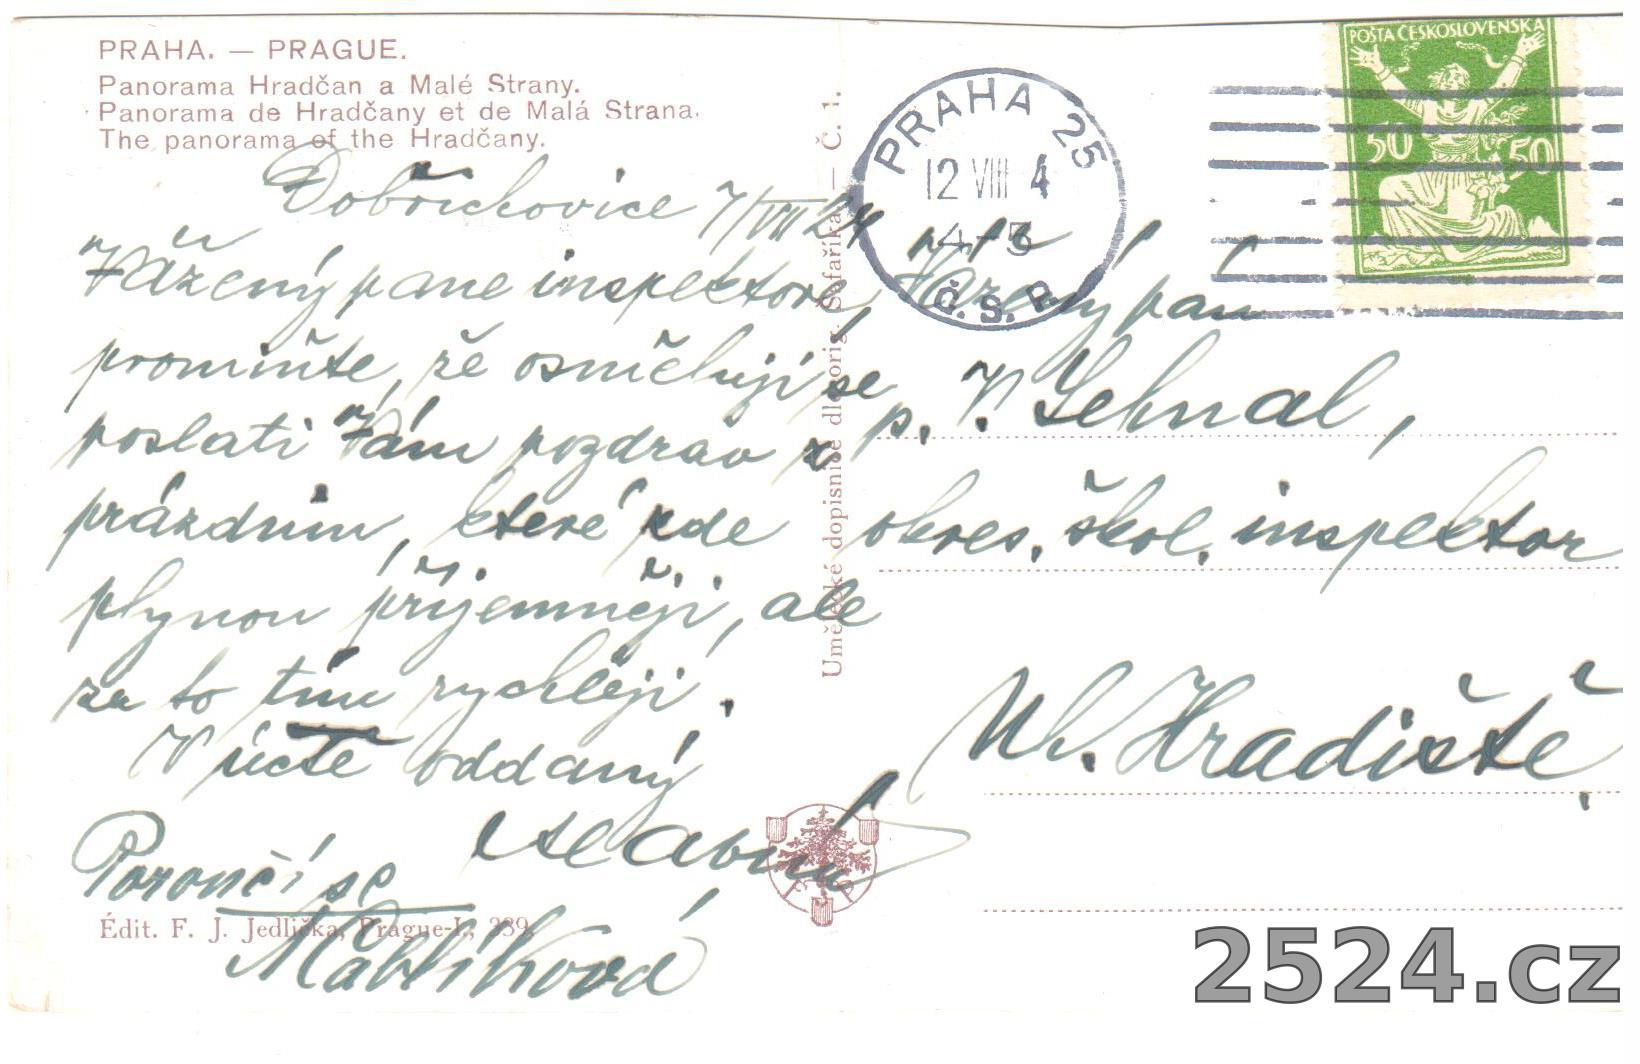 PRAHA. — PRAGUE.
Panorama Hradčan a Malé Strany.
Panorama de Hradčany et de Malá Strana.
The panorama of the Hradčany.
Dobřichovice 7/VIII 24
Vážený pane inspektore,
promiňte, že osměluji se
poslati Vám pozdrav z
prázdnin, které zde
plynou příjemněji, ale
za to tím rychleji.
V úctě oddaný
Poroučí se
Édit. F. J. Jedlička, Prague-I., 339.
Umělecké dopisnice dle orig. Šafaříka — Č. 1.
PRAHA 25
12 VIII 4
Č.S.P.
POŠTA ČESKOSLOVENSKÁ
50 50
Vážený pán
p. V. Sehnal,
okres. škol. inspektor
Uh. Hradiště
2524.cz